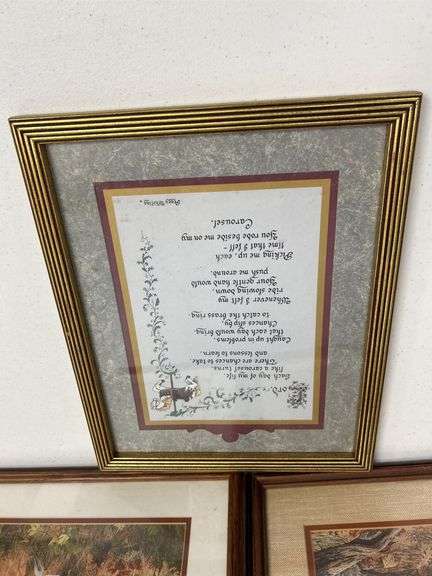 Lord,
Each day of my life
like a carousel turns.
There are chances to take
and lessons to learn.
Caught up in problems,
that each day would bring
Chances slip by
to catch the brass ring.
Whenever I felt my
ride slowing down,
Your gentle hand would
push me around.
Picking me up, each
time that I fell -
You rode beside me on my
Carousel.